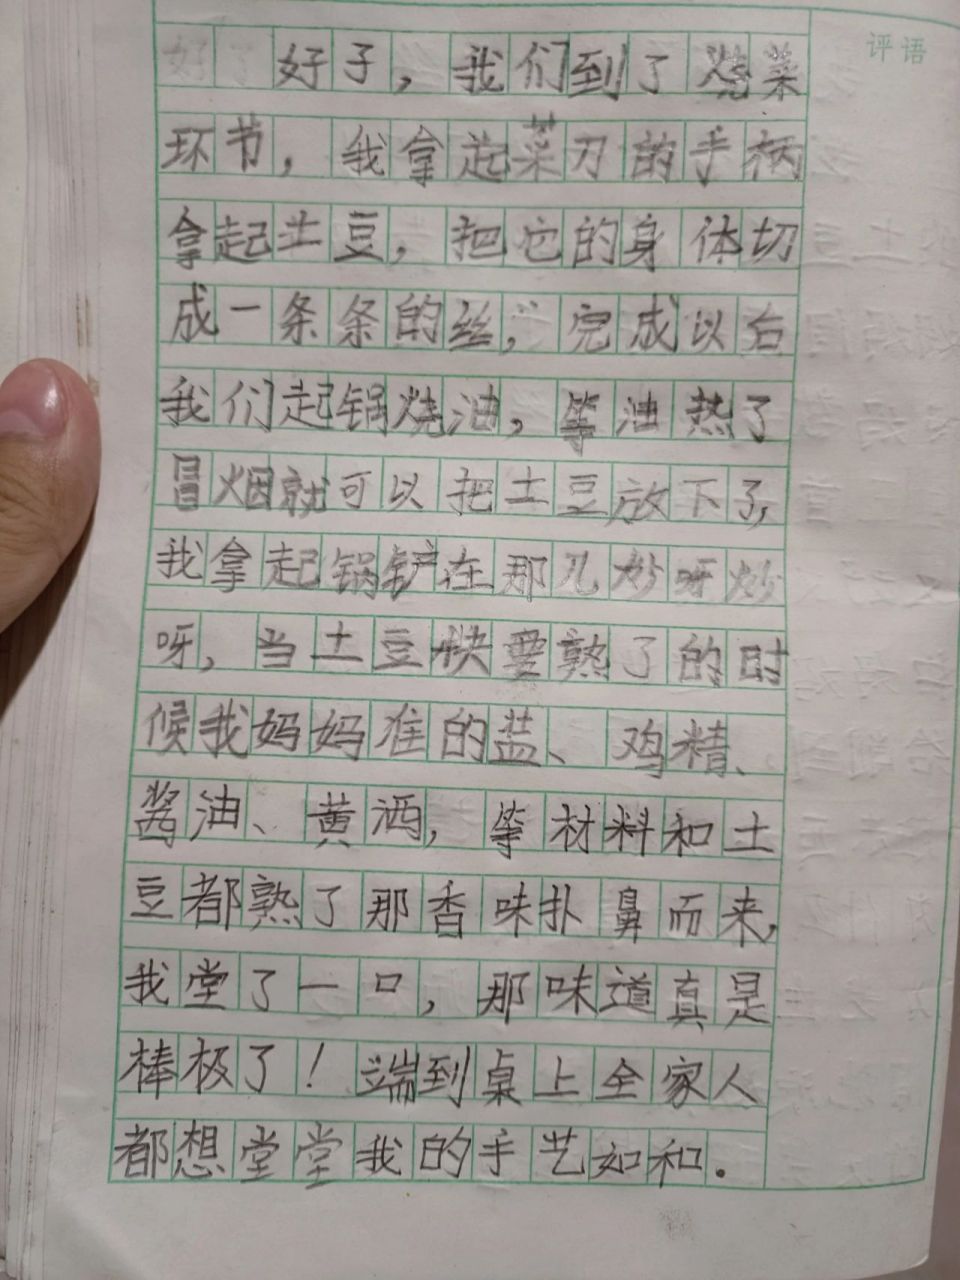 评语
好子，我们到了烧菜
环节，我拿起菜刀的手柄
拿起土豆，把它的身体切
成一条条的丝，完成以后
我们起锅烧油，等油热了
冒烟就可以把土豆放下了，
我拿起锅铲在那儿炒呀炒
呀，当土豆快要熟了的时
候我妈妈准的盐、鸡精、
酱油、黄酒，等材料和土
豆都熟了那香味扑鼻而来，
我堂了一口，那味道真是
棒极了！端到桌上全家人
都想堂堂我的手艺如和．